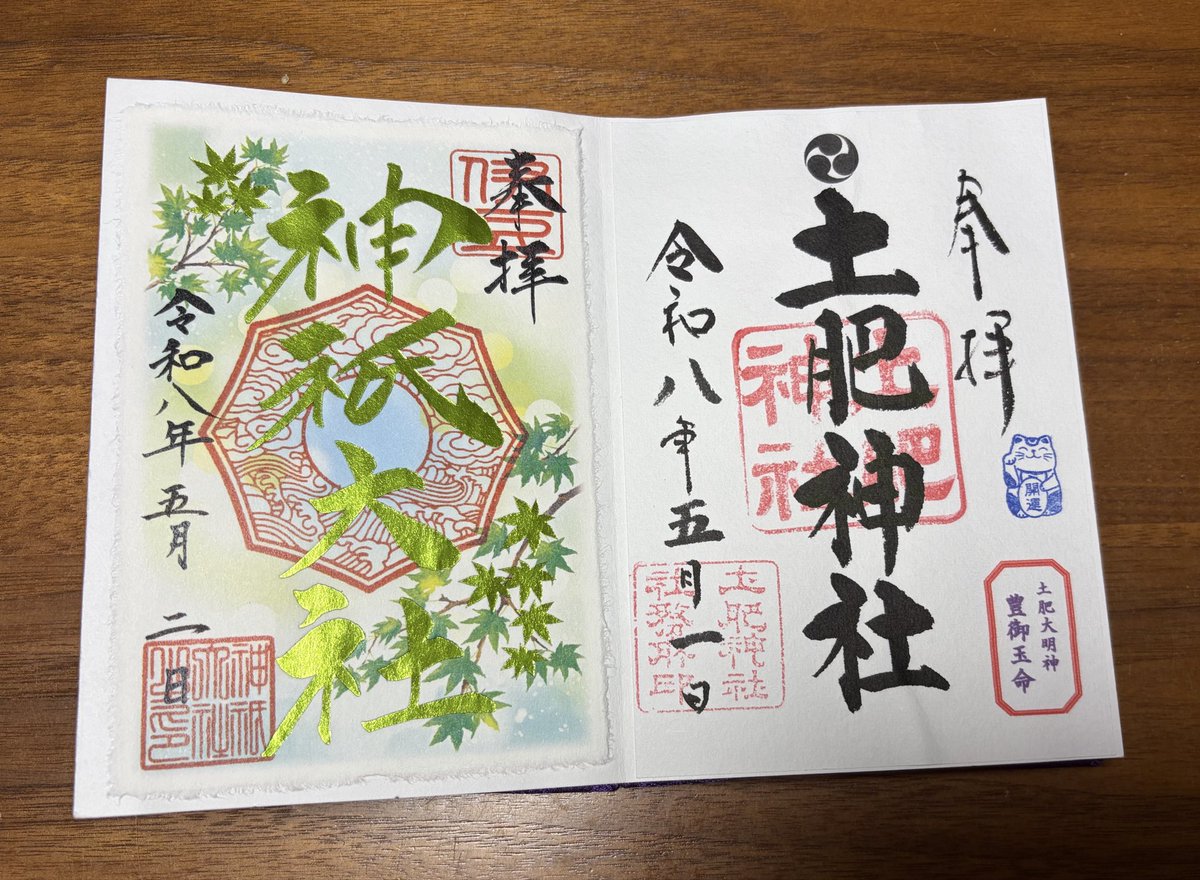 奉拝
土肥神社
令和八年五月一日
開運
土肥大明神
豊御玉命
土肥
神社
土肥神社
社務所印
奉拝
神祇大社
令和八年五月二日
神祇
大社